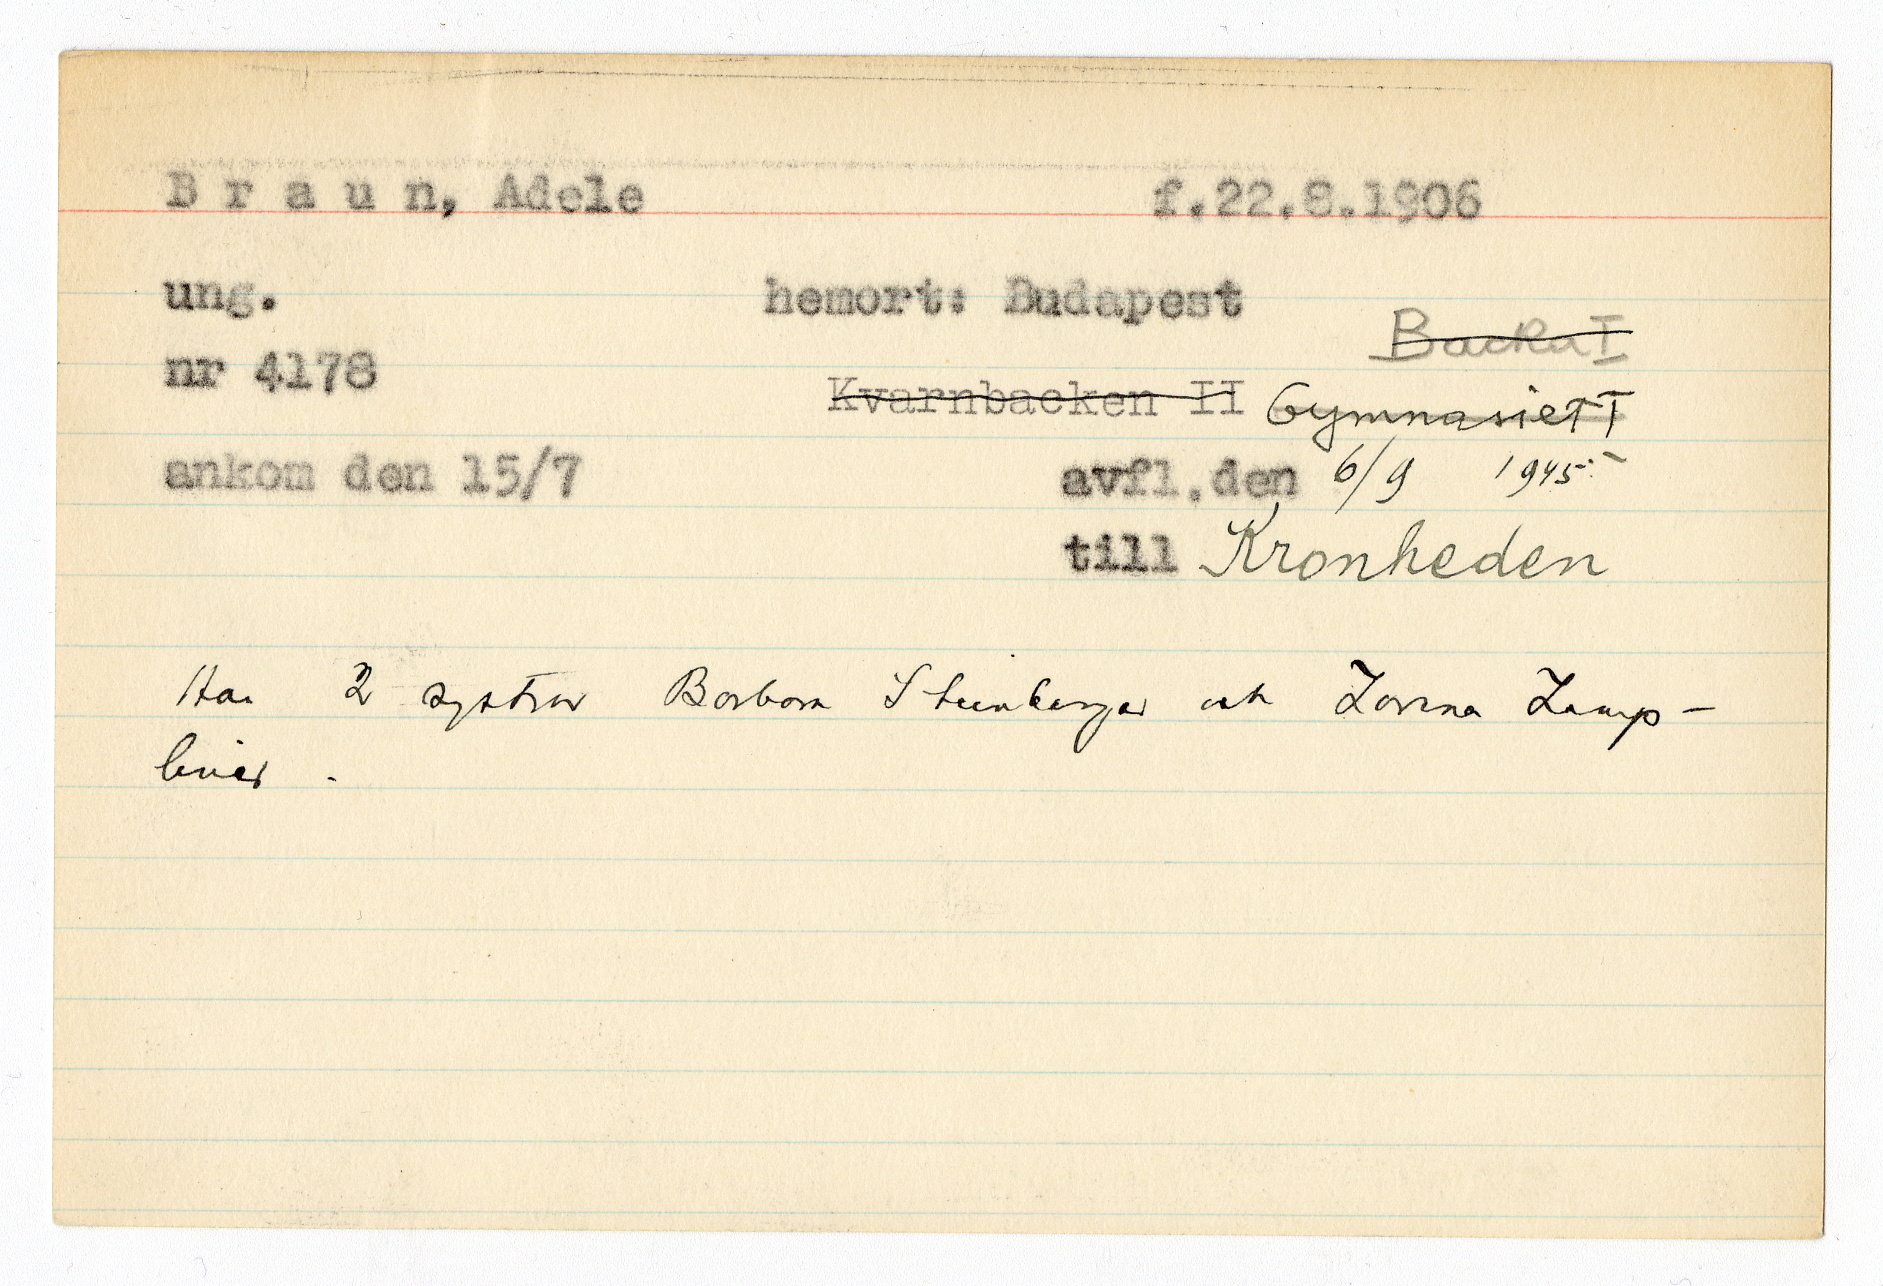 B r a u n, Adele f.22.8.1906
ung. hemort: Budapest
Backa I
nr 4178
Kvarnbacken II Gymnasiet I
ankom den 15/7 avfl.den 6/9 1945
till Kronheden
Har 2 systrar Borbora Steinberger och